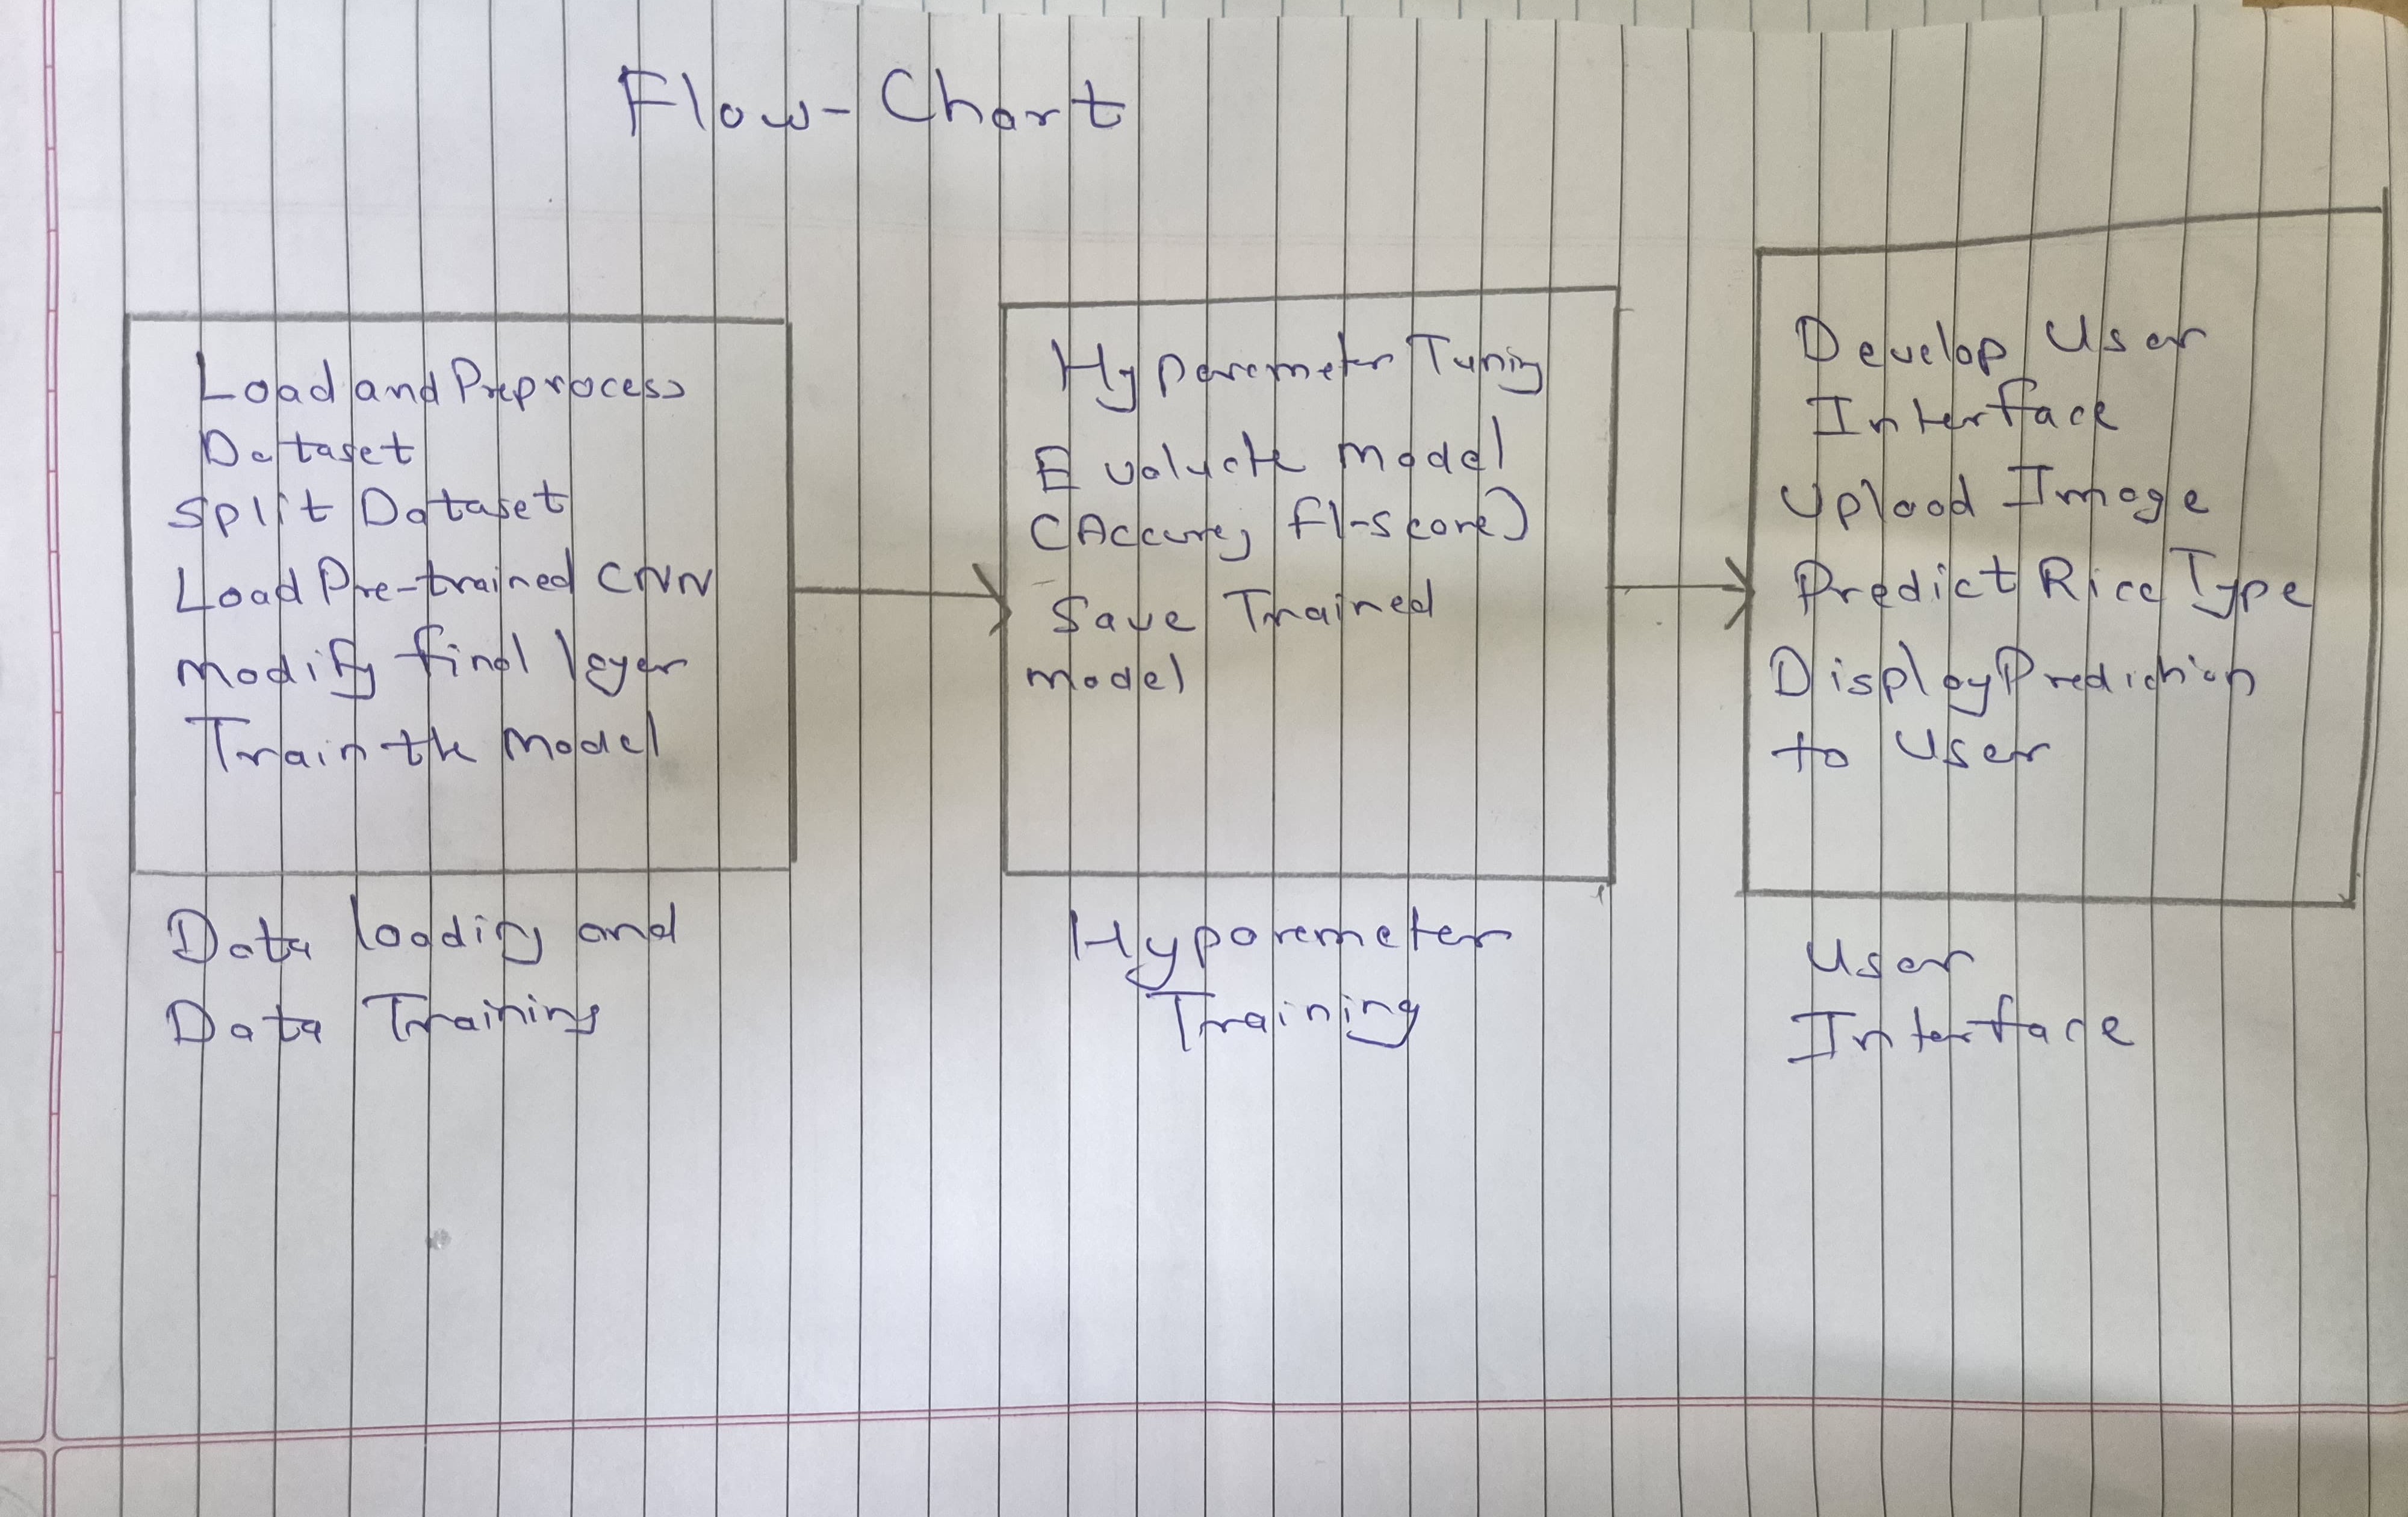 Flow-Chart
Load and Preprocess
Dataset
Split Dataset
Load Pre-trained CNN
Modify final layer
Train the Model
Data loading and
Data Training
Hyperemeter Tuning
Evaluate Model
(Accurey F1-score)
Save Trained
Model
Hyporemeter
Training
Develop User
Interface
Upload Image
Predict Rice Type
Display Prediction
to User
User
Interface